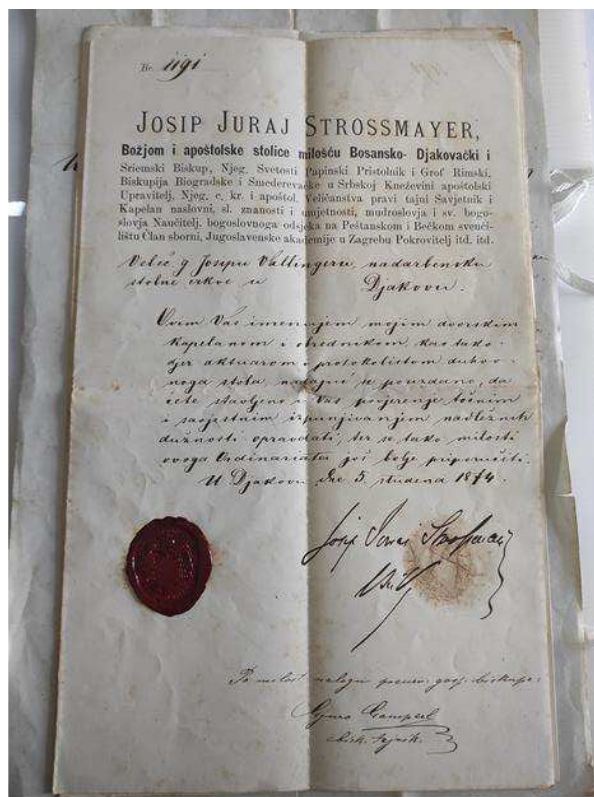 Br. 1191
JOSIP JURAJ STROSSMAYER,
Božjom i apoštolske stolice milošću Bosansko- Djakovački i
Sriemski Biskup, Njeg. Svetosti Papinski Pristolnik i Grof Rimski,
Biskupija Biogradske i Smederevačke u Srbskoj Kneževini apoštolski
Upravitelj, Njeg. c. kr. i apoštol. Veličanstva pravi tajni Savjetnik i
Kapelan naslovni, sl. znanosti i umjetnosti, mudroslovja i sv. bogo-
slovja Naučitelj, bogoslovnoga odsjeka na Peštanskom i Bečkom sveuči-
lištu Član sborni, Jugoslavenske akademije u Zagrebu Pokrovitelj itd. itd.
Veleč. g Josipu Vallingeru, nadarbeniku
stolne crkve u Djakovu.
Ovim Vas imenujem mojim dvorskim
kapelanom i obrednikom, kao tako-
djer aktuarom i protokolistom duhov-
noga stola, nadajuć se pouzdano, da
ćete stavljeno u Vas povjerenje točnim
i savjestnim izpunjivanjem nadležnih
dužnosti opravdati, ter se tako milosti
ovoga Ordinariata još bolje priporučiti.
U Djakovu dne 5. studena 1874.
Josip Juraj Strossmayer
Po milost. nalogu preuzv. gosp. biskupa:
Gjuro
bisk. tajnik.